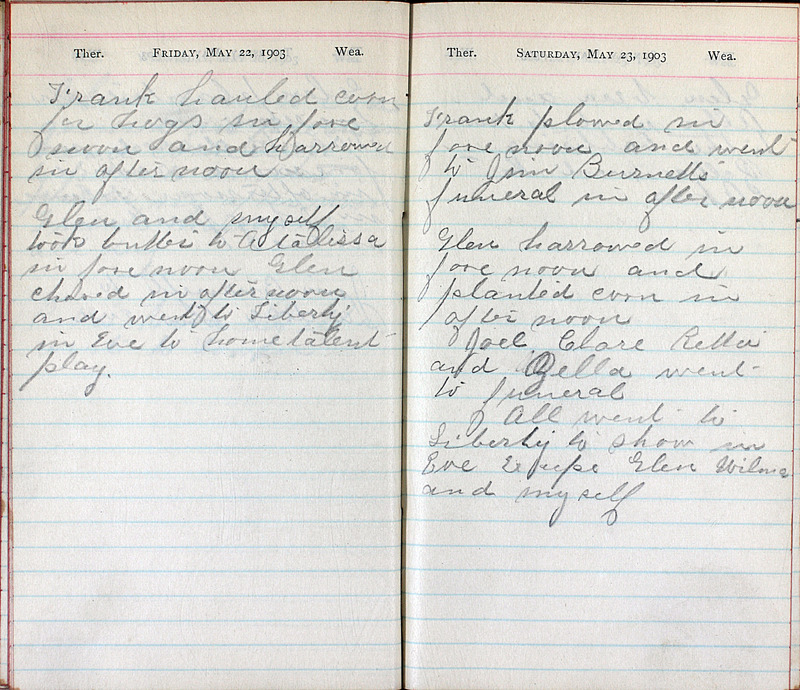 Ther. FRIDAY, MAY 22, 1903 Wea.
Frank hauled corn
for hogs in fore
noon and harrowed
in after noon
Glen and myself
took butter to Atalissa
in fore noon Glen
chored in after noon
and went to Liberty
in Eve to home talent
play.
Ther. SATURDAY, MAY 23, 1903 Wea.
Frank plowed in
fore noon and went
to Jim Burnetts
funeral in after noon
Glen harrowed in
fore noon and
planted corn in
after noon
Joel Clare Retta
and Zella went
to funeral
All went to
Liberty to show in
Eve Glen Wilma
and myself